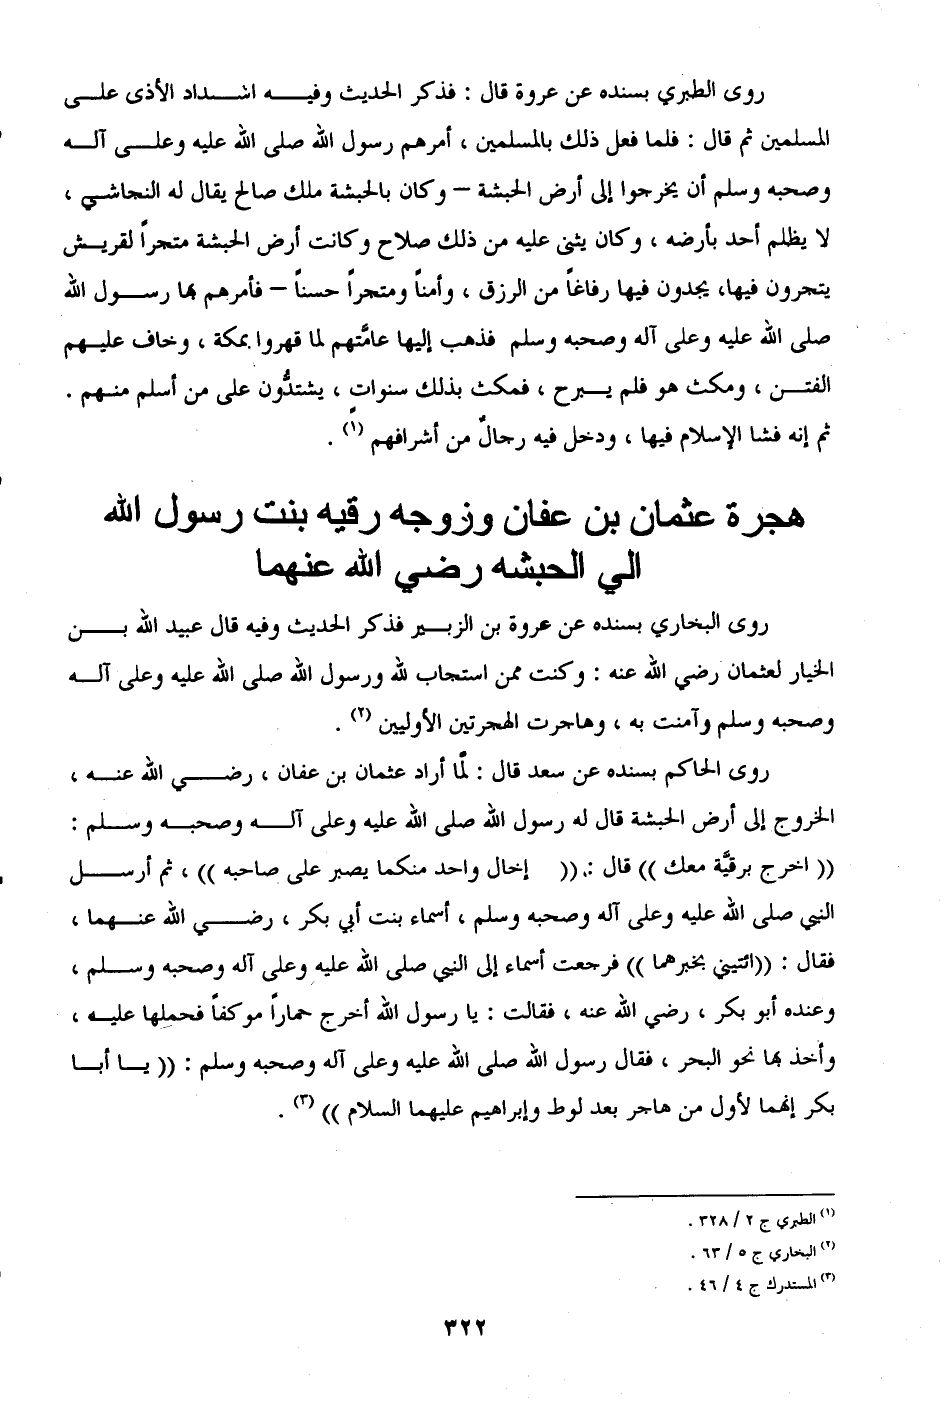 روى الطبري بسنده عن عروة قال : فذكر الحديث وفيه اشداد الأذى على
المسلمين ثم قال : فلما فعل ذلك بالمسلمين ، أمرهم رسول الله صلى الله عليه وعلى آله
وصحبه وسلم أن يخرجوا إلى أرض الحبشة – وكان بالحبشة ملك صالح يقال له النجاشي ،
لا يظلم أحد بأرضه ، وكان يثنى عليه من ذلك صلاح وكانت أرض الحبشة متجراً لقريش
يتجرون فيها، يجدون فيها رفاغاً من الرزق ، وأمناً ومتجراً حسناً – فأمرهم بها رسول الله
صلى الله عليه وعلى آله وصحبه وسلم فذهب إليها عامَّتهم لما قهروا بمكة ، وخاف عليهم
الفتن ، ومكث هو فلم يبرح ، فمكث بذلك سنوات ، يشتدُّون على من أسلم منهم .
ثم إنه فشا الإسلام فيها ، ودخل فيه رجالٌ من أشرافهم (١) .
هجرة عثمان بن عفان وزوجه رقيه بنت رسول الله
الي الحبشه رضي الله عنهما
روى البخاري بسنده عن عروة بن الزبير فذكر الحديث وفيه قال عبيد الله بن
الخيار لعثمان رضي الله عنه : وكنت ممن استجاب لله ورسول الله صلى الله عليه وعلى آله
وصحبه وسلم وآمنت به ، وهاجرت الهجرتين الأوليين (٢) .
روى الحاكم بسنده عن سعد قال : لمَّا أراد عثمان بن عفان ، رضي الله عنه ،
الخروج إلى أرض الحبشة قال له رسول الله صلى الله عليه وعلى آله وصحبه وسلم :
(( اخرج برقيَّة معك )) قال : (( إخال واحد منكما يصبر على صاحبه )) ، ثم أرسل
النبي صلى الله عليه وعلى آله وصحبه وسلم ، أسماء بنت أبي بكر ، رضي الله عنهما ،
فقال : ((ائتيني بخبرهما )) فرجعت أسماء إلى النبي صلى الله عليه وعلى آله وصحبه وسلم ،
وعنده أبو بكر ، رضي الله عنه ، فقالت : يا رسول الله أخرج حماراً موكفاً فحملها عليه ،
وأخذ بها نحو البحر ، فقال رسول الله صلى الله عليه وعلى آله وصحبه وسلم : (( يا أبا
بكر إنهما لأول من هاجر بعد لوط وإبراهيم عليهما السلام )) (٣) .
(١) الطبري ج ٢ / ٣٢٨ .
(٢) البخاري ج ٥ / ٦٣ .
(٣) المستدرك ج ٤ / ٤٦ .
٣٢٢